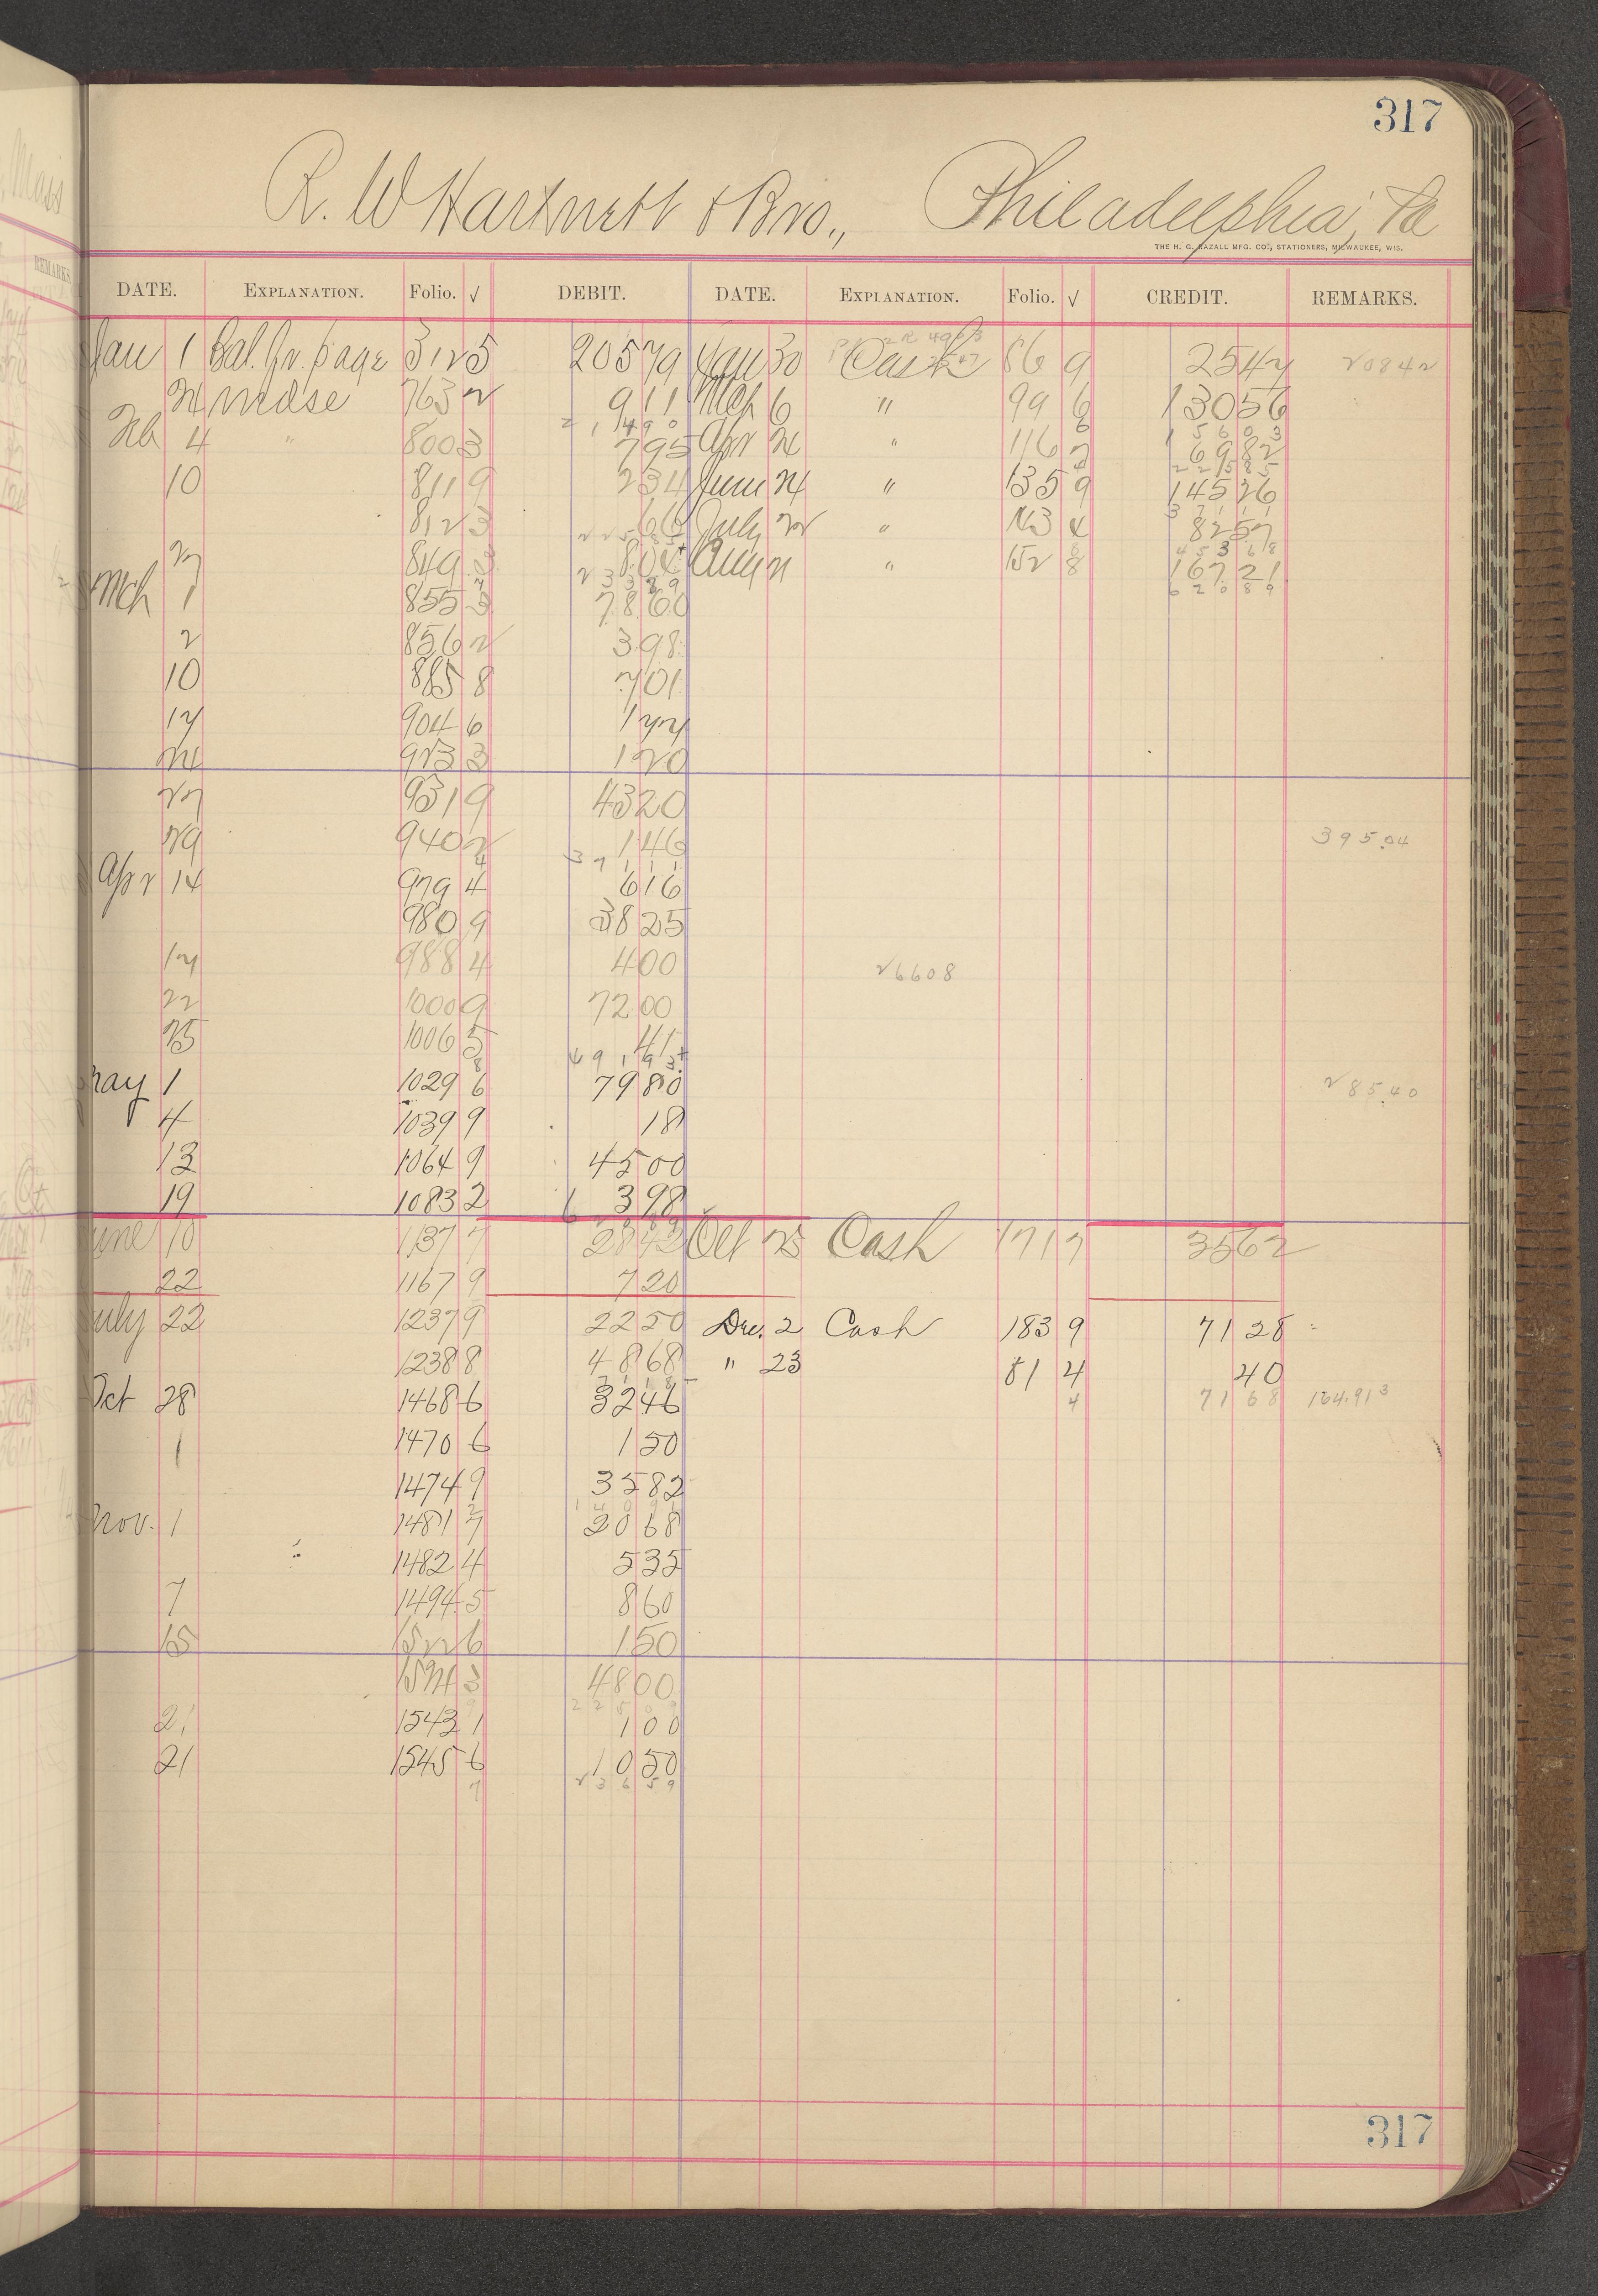 317
R. W Hartnett & Bro., Philadelphia, Pa
THE H. G. RAZALL MFG. CO., STATIONERS, MILWAUKEE, WIS.
DATE. EXPLANATION. Folio. √ DEBIT. DATE. EXPLANATION. Folio. √ CREDIT. REMARKS.
Jan 1 Bal. fr. page 312 5 20579 Jan 30 Cash 86 9 2547 20842
24 mdse 763 2 911 Mch 6 " 99 6 13056
2 1 4 9 0 1 5 6 0 3
Feb 4 " 800 3 795 Apr 24 " 116 2 6982
2 2 5 8 5
10 811 9 234 June 24 " 135 9 14526
3 7 1 1 1
812 3 66 July 22 " 143 4 8257
4 5 3 6 8
27 849 804 Aug 21 " 152 8 16721
2 3 3 8 9 6 2 0 8 9
Mch 1 855 3 7860
2 856 2 398
10 885 8 701
17 904 6 177
24 923 3 120
27 931 9 4320
29 940 2 146 395.04
3 7 1 1 1
Apr 14 979 4 616
980 9 3825
17 988 4 400 26608
22 1000 9 7200
25 1006 5 41
4 9 1 9 3
May 1 1029 6 7980 285.40
4 1039 9 18
13 1064 9 4500
19 1083 2 398
June 10 1137 7 2842 Oct 25 Cash 171 7 3562
22 1167 9 720
July 22 1237 9 2250 Dec. 2 Cash 183 9 71 28
1238 8 4868 " 23 81 4 40
Oct 28 1468 6 3246 4 71 68 164.91 3
1 1470 6 150
1474 9 3582
1 4 0 9 6
Nov. 1 1481 7 2068
1482 4 535
7 1494 5 860
15 1522 6 150
1524 3 4800
2 2 5 0 9
21 1543 1 100
21 1545 6 1050
7 2 3 6 5 9
317